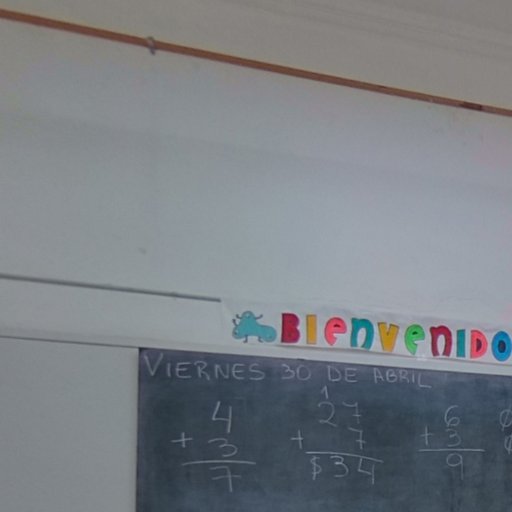 BIENVENIDO
VIERNES 30 DE ABRIL
1
4 27 6
+ 3 + 7 + 3
7 $34 9